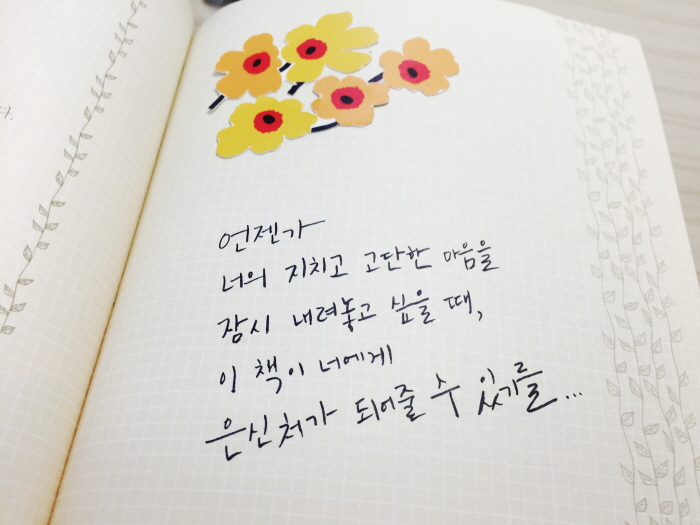 언젠가
너의 지치고 고단한 마음을
잠시 내려놓고 싶을 때,
이 책이 너에게
은신처가 되어줄 수 있기를...
다.